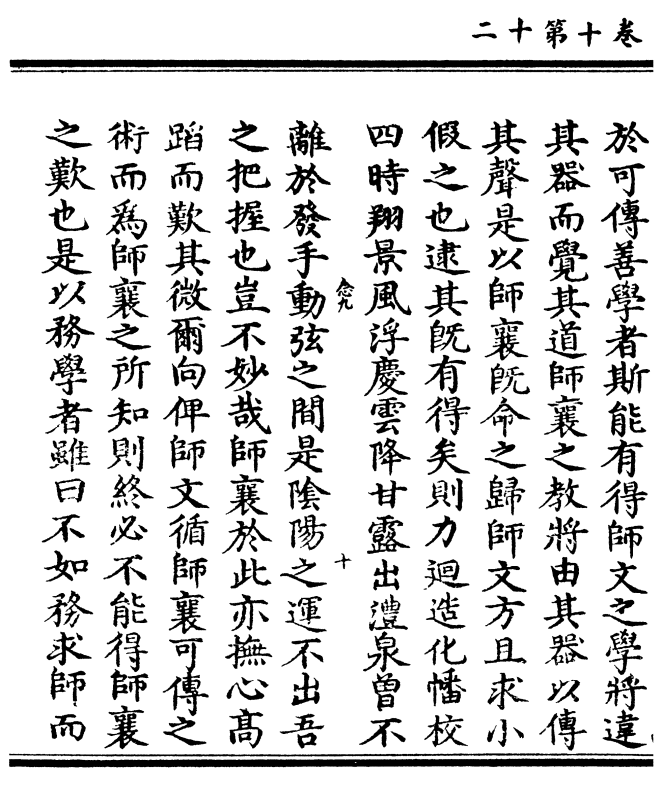 卷十第十二
於可傳善學者斯能有得師文之學將違
其器而覺其道師襄之教將由其器以傳
其聲是以師襄旣命之歸師文方且求小
假之也逮其旣有得矣則力迴造化幡校
四時翔景風浮慶雲降甘露出澧泉曾不
念九
十
離於發手動弦之間是陰陽之運不出吾
之把握也豈不妙哉師襄於此亦撫心高
蹈而歎其微爾向俾師文循師襄可傳之
術而爲師襄之所知則終必不能得師襄
之歎也是以務學者雖曰不如務求師而